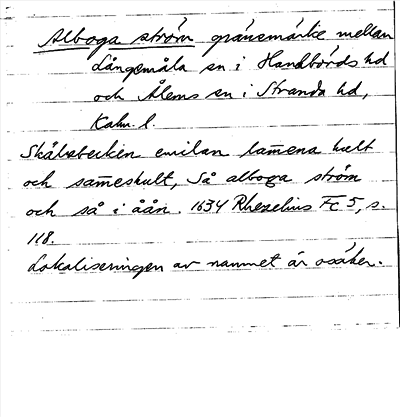 Alboga ström gränsmärke mellan
Långemåla sn i Handbörds hd
och Ålems sn i Stranda hd,
Kalm. l.
Skälsbecken emilan lamena hult
och sameshult, Så alboga ström
och så i åån. 1634 Rhezelius Fc 5, s.
118.
Lokaliseringen av namnet är osäker.